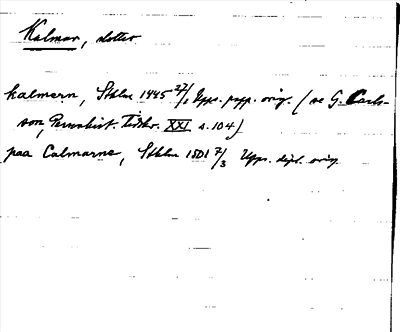 Kalmar, slottet
kalmarn, Sthlm 1445 27/1 Upps. papp. orig. (se G. Carls-
son, Personhist. Tidskr. XXI s. 104)
paa Calmarne, Sthlm 1501 7/3 Upps. dipl. orig.